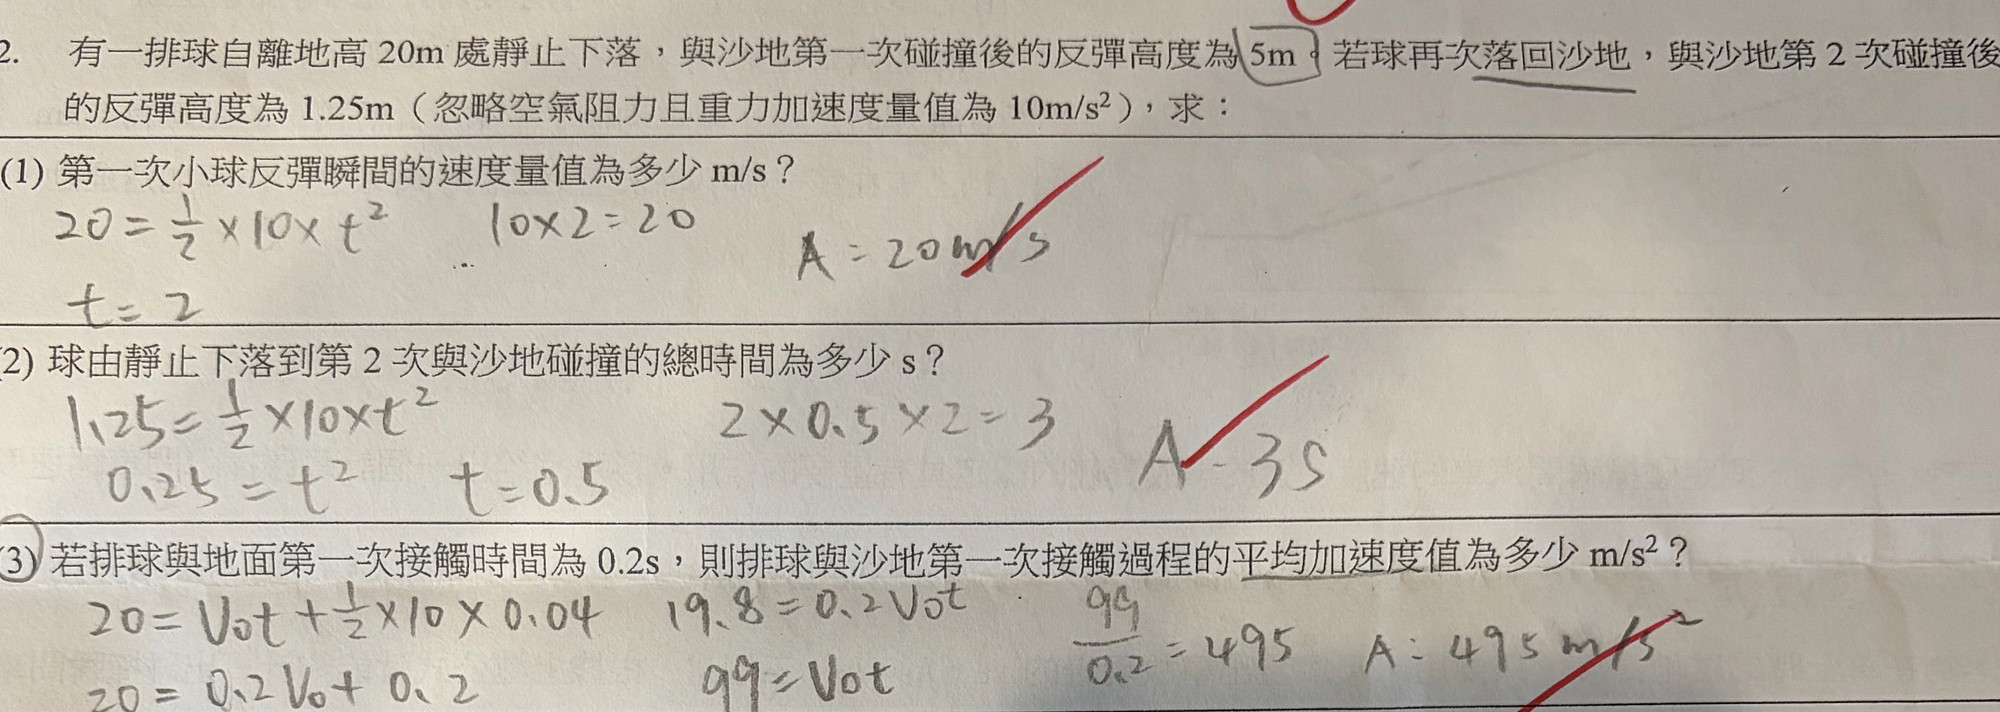 2. 有一排球自離地高 20m 處靜止下落，與沙地第一次碰撞後的反彈高度為 5m。若球再次落回沙地，與沙地第 2 次碰撞後
的反彈高度為 1.25m（忽略空氣阻力且重力加速度量值為 10m/s²），求：
(1) 第一次小球反彈瞬間的速度量值為多少 m/s？
20 = 1/2 × 10 × t² 10×2=20
A = 20 m/s
t = 2
(2) 球由靜止下落到第 2 次與沙地碰撞的總時間為多少 s？
1.25 = 1/2 ×10×t² 2×0.5×2=3
A = 3s
0.25 = t² t=0.5
(3) 若排球與地面第一次接觸時間為 0.2s，則排球與沙地第一次接觸過程的平均加速度值為多少 m/s²？
20 = V₀t + 1/2 ×10×0.04 19.8 = 0.2V₀t 99/0.2 = 495 A = 495 m/s²
20 = 0.2V₀ + 0.2 99 = V₀t